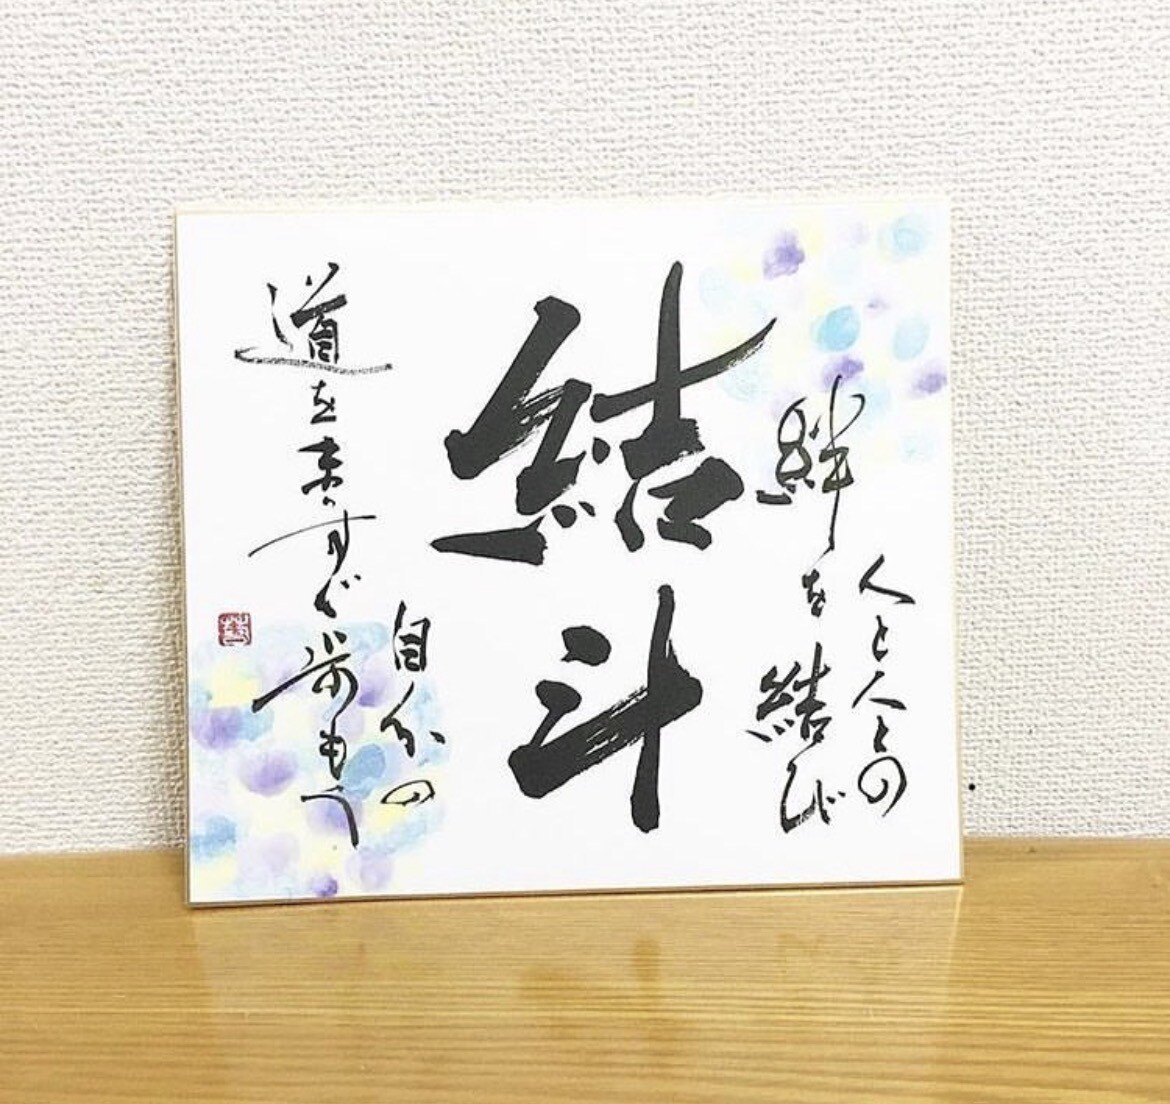 人と人との
絆を結び
結斗
自分の
道をまっすぐ歩もう